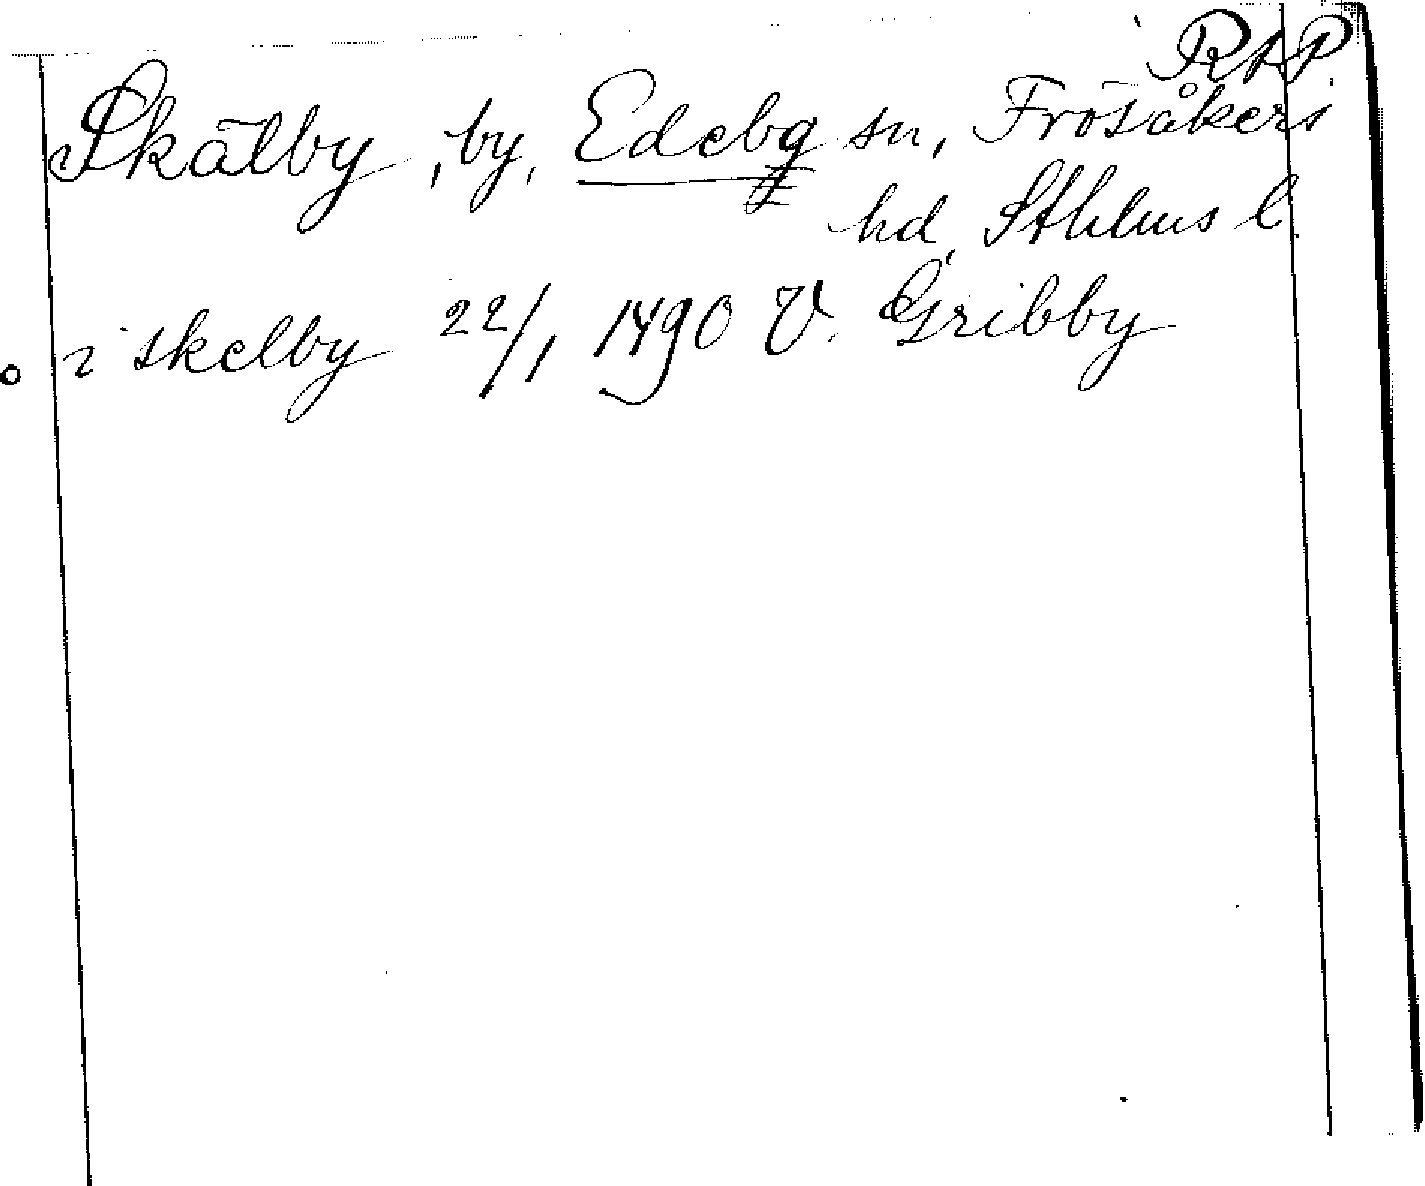 RAP
Skälby, by, Edebg sn, Frösåkers
hd, Sthlms l.
i skelby 22/1 1490 V. Gribby